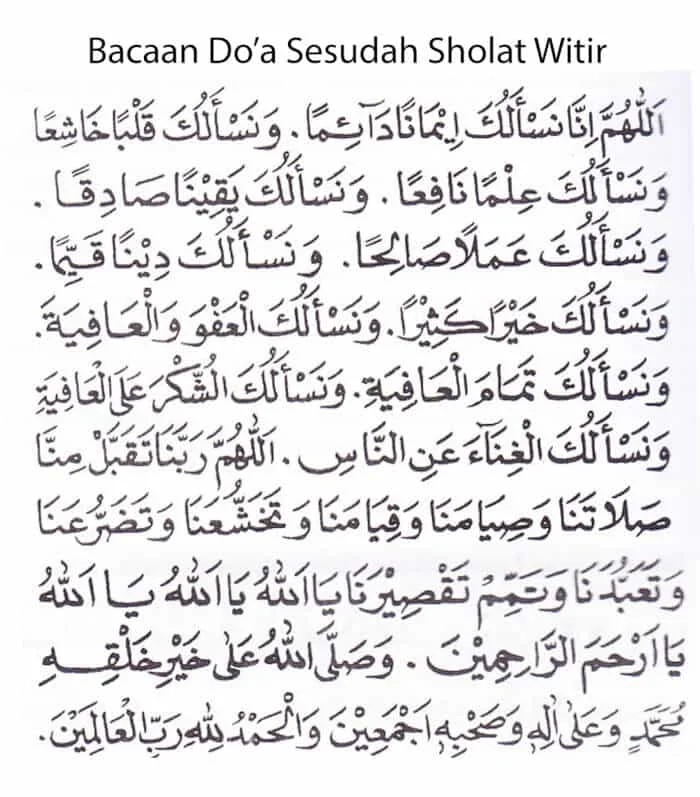 Bacaan Do'a Sesudah Sholat Witir
اَللّٰهُمَّ اِنَّا نَسْأَلُكَ اِيْمَانًا دَآئِمًا. وَنَسْأَلُكَ قَلْبًا خَاشِعًا
وَنَسْأَلُكَ عِلْمًا نَافِعًا. وَنَسْأَلُكَ يَقِيْنًا صَادِقًا.
وَنَسْأَلُكَ عَمَلًا صَالِحًا. وَنَسْأَلُكَ دِيْنًا قَيِّمًا.
وَنَسْأَلُكَ خَيْرًا كَثِيْرًا. وَنَسْأَلُكَ الْعَفْوَ وَالْعَافِيَةَ.
وَنَسْأَلُكَ تَمَامَ الْعَافِيَةِ. وَنَسْأَلُكَ الشُّكْرَ عَلَى الْعَافِيَةِ
وَنَسْأَلُكَ الْغِنَآءَ عَنِ النَّاسِ. اَللّٰهُمَّ رَبَّنَا تَقَبَّلْ مِنَّا
صَلَاتَنَا وَصِيَامَنَا وَقِيَامَنَا وَتَخَشُّعَنَا وَتَضَرُّعَنَا
وَتَعَبُّدَنَا وَتَمِّمْ تَقْصِيْرَنَا يَا اَللّٰهُ يَا اَللّٰهُ يَا اَللّٰهُ
يَا اَرْحَمَ الرَّاحِمِيْنَ. وَصَلَّى اللّٰهُ عَلٰى خَيْرِ خَلْقِهِ
مُحَمَّدٍ وَعَلٰى اٰلِهٖ وَصَحْبِهٖ اَجْمَعِيْنَ وَالْحَمْدُ لِلّٰهِ رَبِّ الْعَالَمِيْنَ.